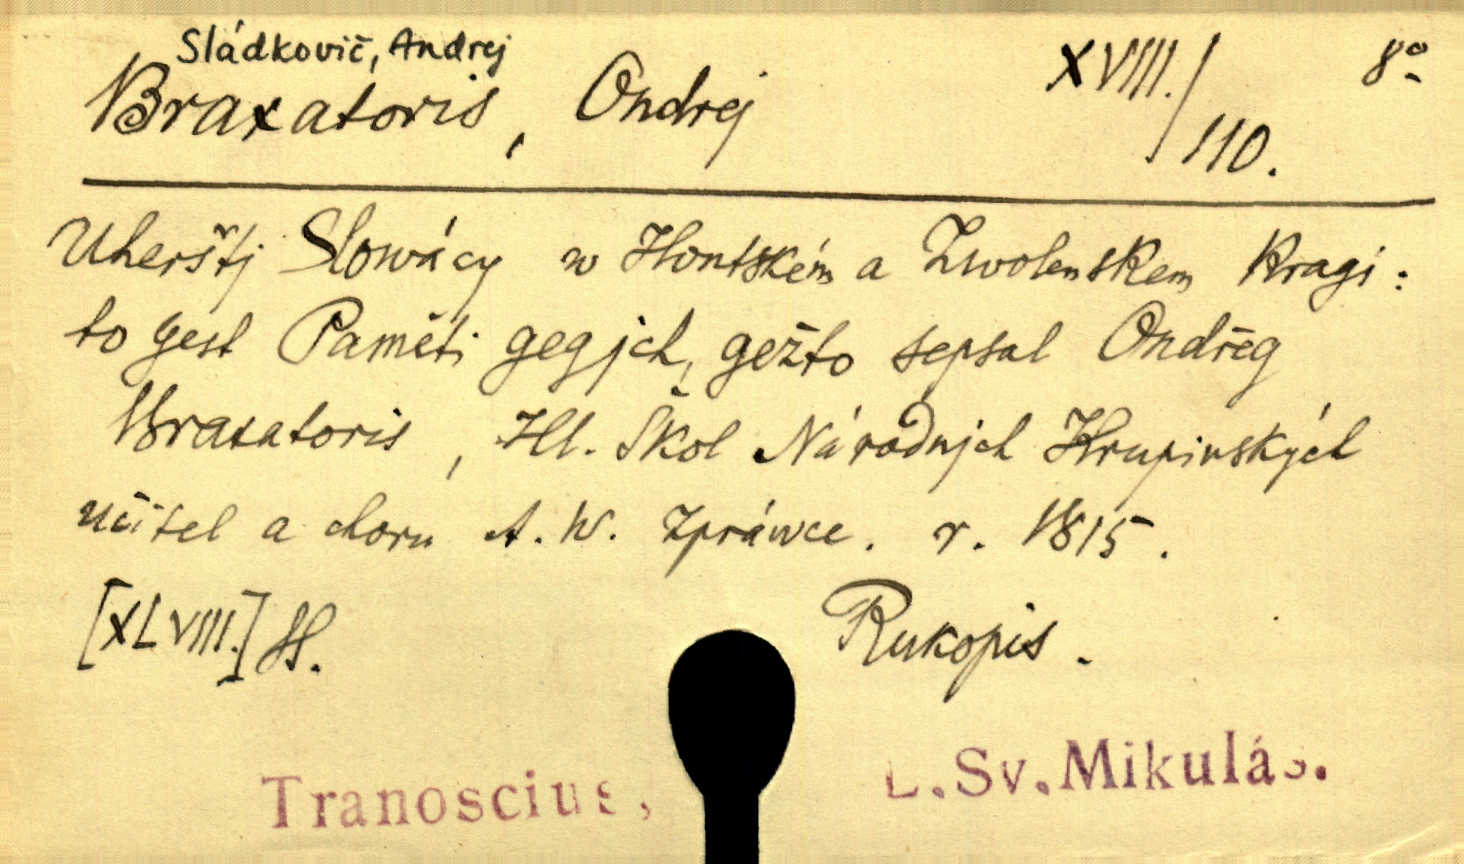 Sládkovič, Andrej
Braxatoris, Ondrej XVIII./110. 8º
Uherštj Slowácy w Hontském a Zwolenskem Kragi:
to gest Paměti gegjch, gežto sepsal Ondřeg
Braxatoris, Hl. Škol Národnjch Krupinských
učitel a choru A. W. Zpráwce. r. 1815.
[XLVIII.] H. Rukopis.
Tranoscius, L.Sv.Mikuláš.